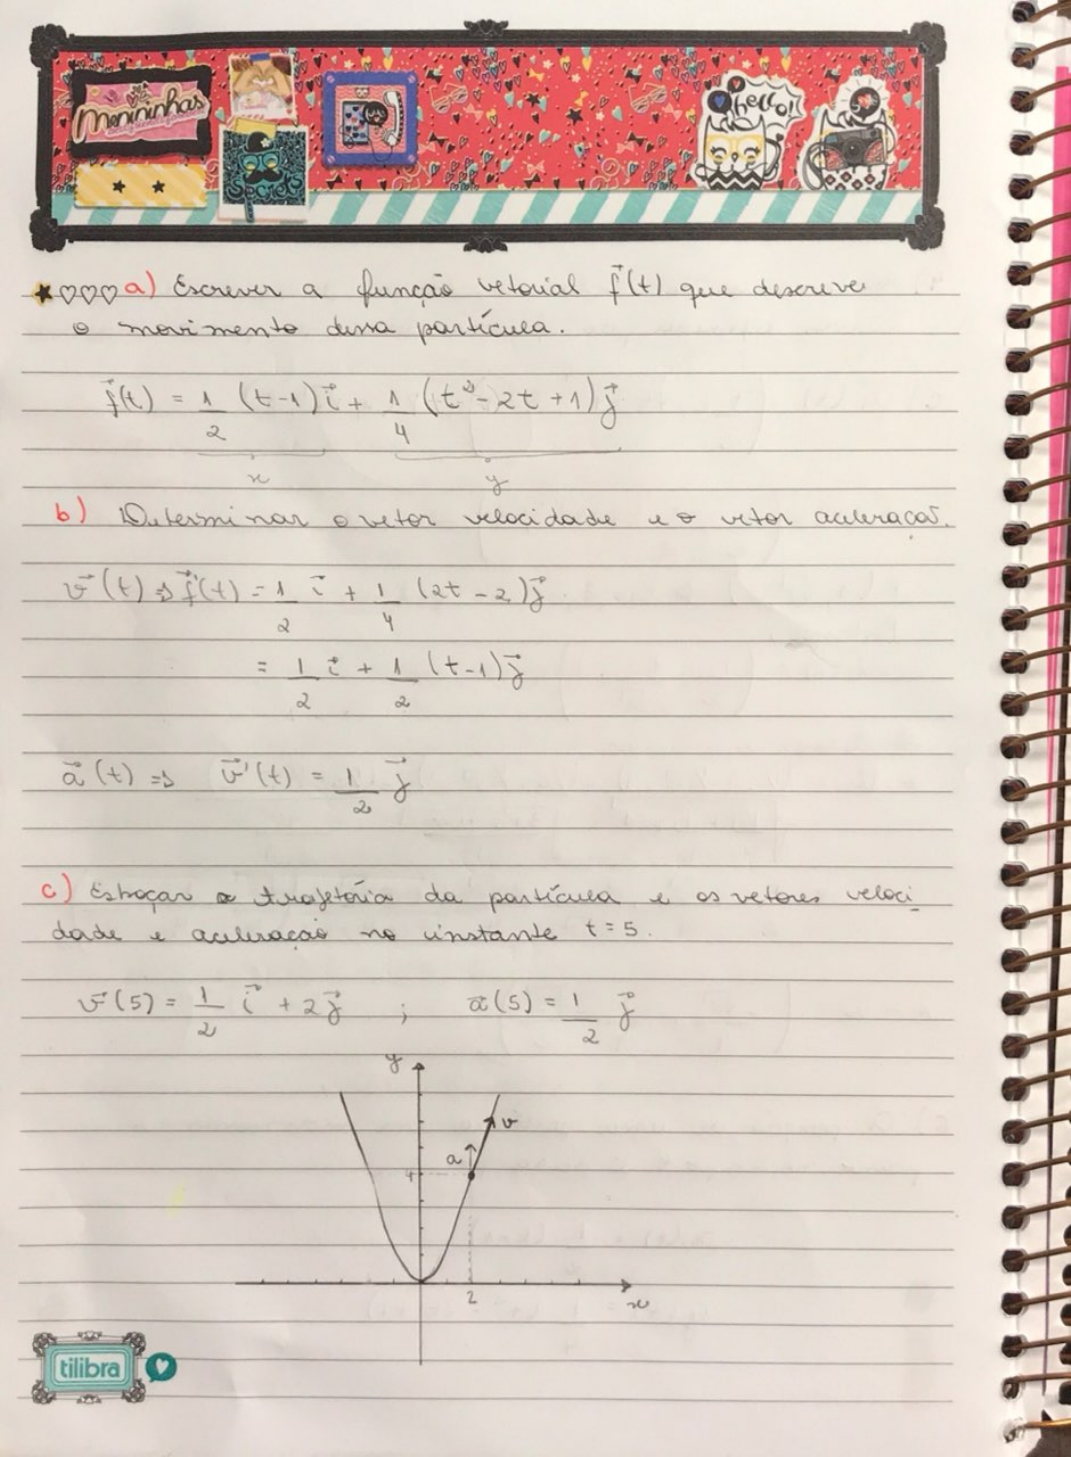 Menininhas
hello!
Secrets
a) Escrever a função vetorial f⃗(t) que descreve
o movimento dessa partícula.
f⃗(t) = 1/2 (t-1) i⃗ + 1/4 (t² - 2t + 1) j⃗
x y
b) Determinar o vetor velocidade e o vetor aceleração.
v⃗(t) ⇒ f⃗'(t) = 1/2 i⃗ + 1/4 (2t - 2) j⃗
= 1/2 i⃗ + 1/2 (t-1) j⃗
a⃗(t) ⇒ v⃗'(t) = 1/2 j⃗
c) Esboçar a trajetória da partícula e os vetores veloci_
dade e aceleração no instante t = 5.
v⃗(5) = 1/2 i⃗ + 2j⃗ ; a⃗(5) = 1/2 j⃗
y
v
a
4
2
x
tilibra